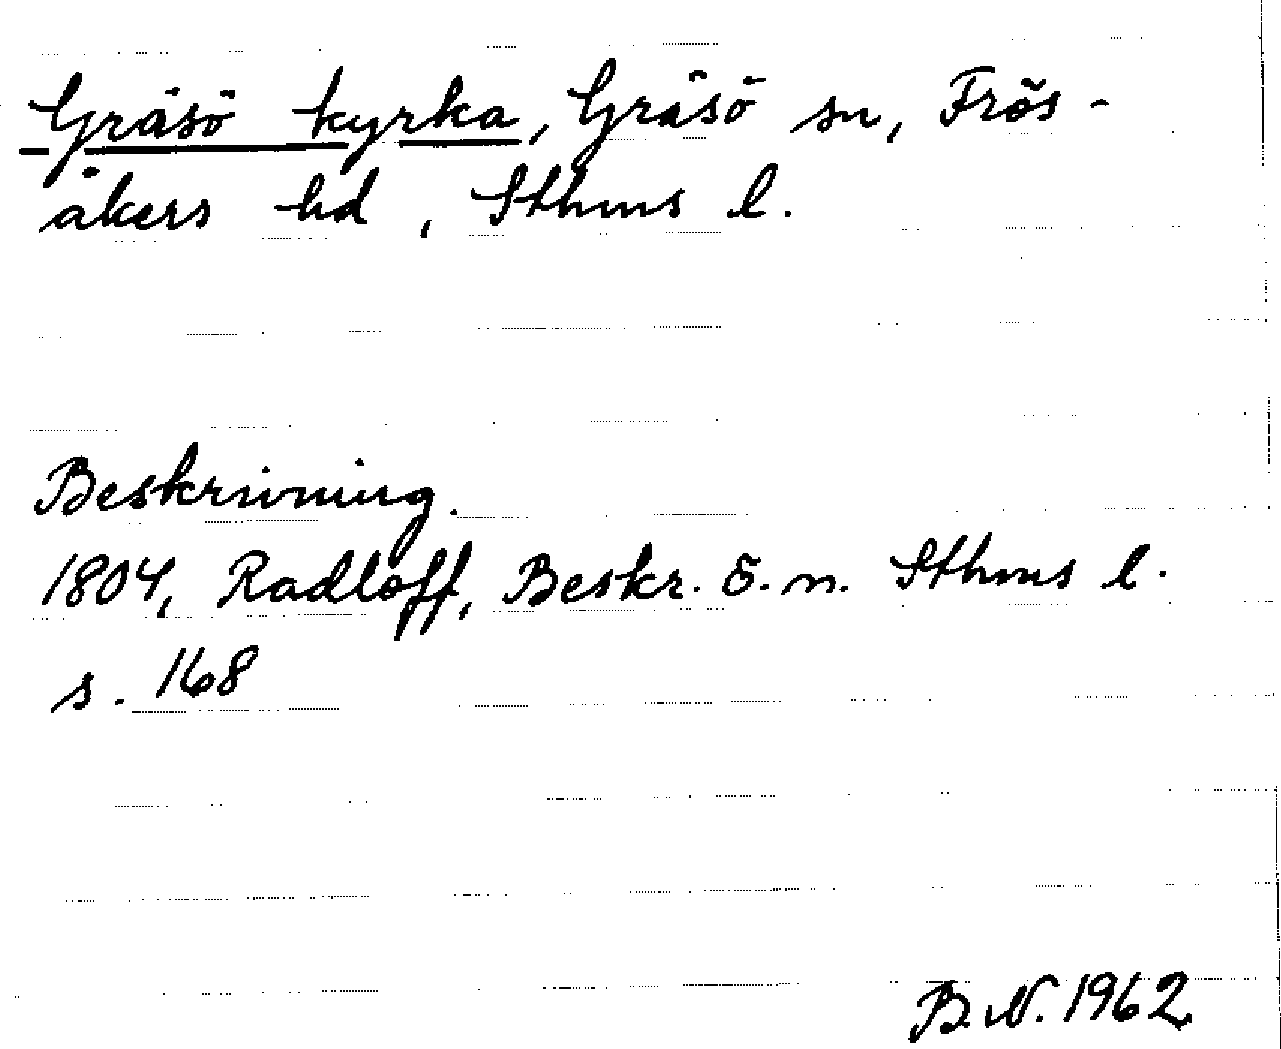 Gräsö kyrka, Gräsö sn, Frös-
åkers hd, Sthms l.
Beskrivning.
1804, Radloff, Beskr. ö. n. Sthms l.
s. 168
B.N. 1962